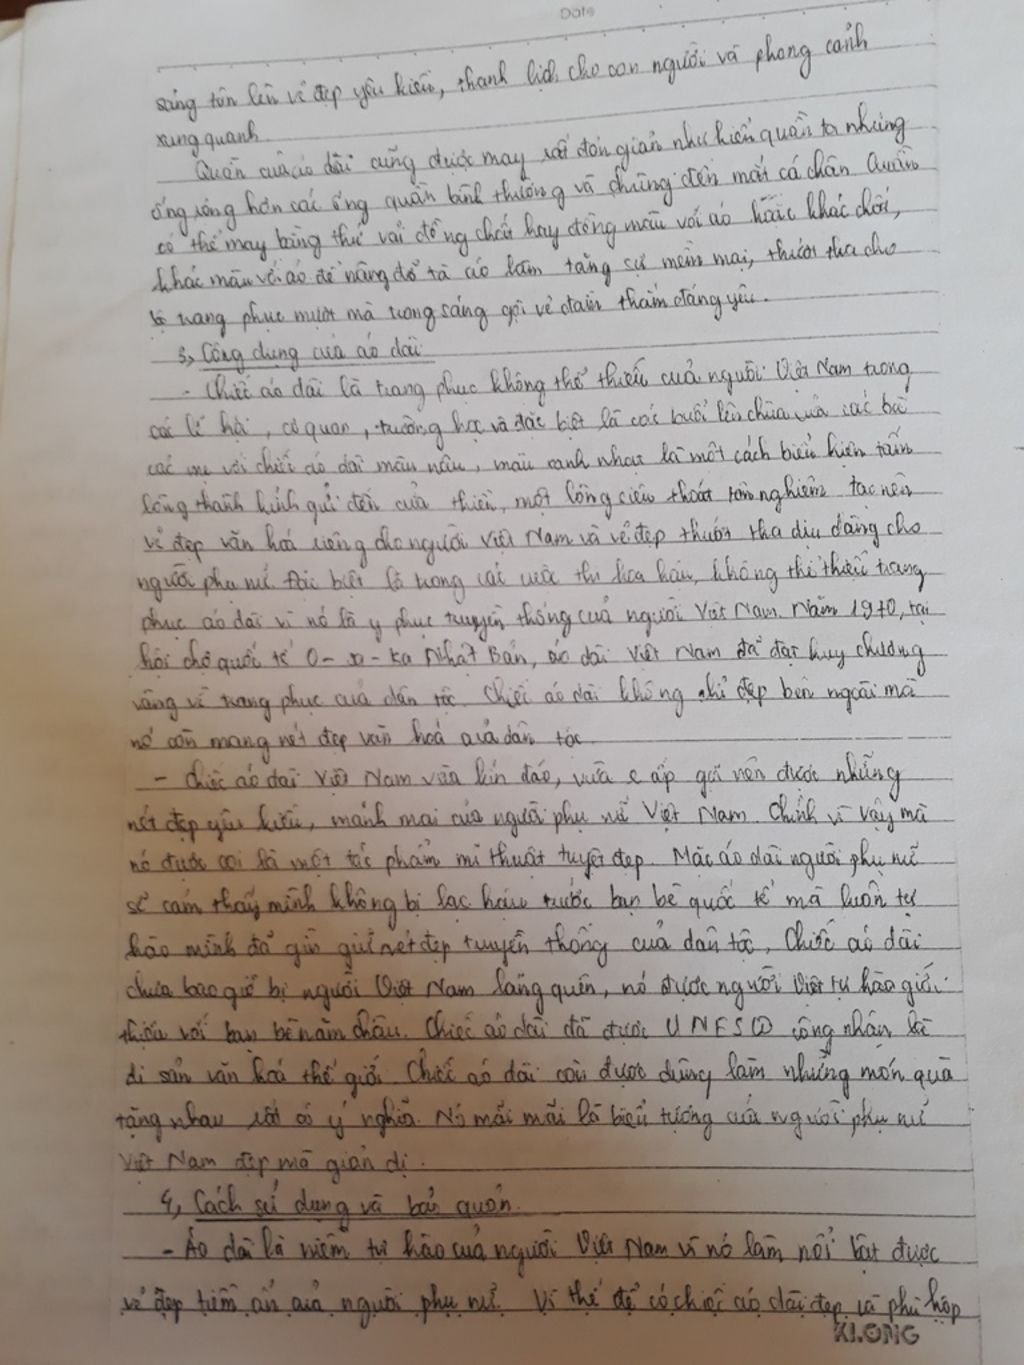 Date
sáng tôn lên vẻ đẹp yêu kiều, thanh lịch cho con người và phong cảnh
xung quanh.
Quần của áo dài cũng được may rất đơn giản như kiểu quần ta nhưng
ống rộng hơn các ống quần bình thường và chừng đến mắt cá chân. Quần
có thể may bằng thứ vải đồng chất hay đồng màu với áo hoặc khác chất,
khác màu với áo để nâng đỡ tà áo làm tăng sự mềm mại, thướt tha cho
bộ trang phục mượt mà trong sáng gợi vẻ đằm thắm đáng yêu.
3, Công dụng của áo dài
- Chiếc áo dài là trang phục không thể thiếu của người Việt Nam trong
các lễ hội, cơ quan, trường học và đặc biệt là các buổi lên chùa của các bà
các mẹ với chiếc áo dài màu nâu, màu xanh nhạt là một cách biểu hiện tấm
lòng thành kính gửi đến cửa thiền, một lòng siêu thoát tôn nghiêm tạo nên
vẻ đẹp văn hoá riêng cho người Việt Nam và vẻ đẹp thướt tha dịu dàng cho
người phụ nữ. Đặc biệt là trong các cuộc thi hoa hậu, không thể thiếu trang
phục áo dài vì nó là y phục truyền thống của người Việt Nam. Năm 1970, tại
hội chợ quốc tế O-xa-ka Nhật Bản, áo dài Việt Nam đã đạt huy chương
vàng về trang phục của dân tộc. Chiếc áo dài không chỉ đẹp bên ngoài mà
nó còn mang nét đẹp văn hoá của dân tộc
- Chiếc áo dài Việt Nam vừa kín đáo, vừa e ấp gợi nên được những
nét đẹp yêu kiều, mảnh mai của người phụ nữ Việt Nam. Chính vì vậy mà
nó được coi là một tác phẩm mĩ thuật tuyệt đẹp. Mặc áo dài người phụ nữ
sẽ cảm thấy mình không bị lạc hậu trước bạn bè quốc tế mà luôn tự
hào mình đã gìn giữ nét đẹp truyền thống của dân tộc, Chiếc áo dài
chưa bao giờ bị người Việt Nam lãng quên, nó được người Việt tự hào giới
thiệu với bạn bè năm châu. Chiếc áo dài đã được UNESCO công nhận là
di sản văn hoá thế giới. Chiếc áo dài còn được dùng làm những món quà
tặng nhau rất có ý nghĩa. Nó mãi mãi là biểu tượng của người phụ nữ
Việt Nam đẹp mà giản dị.
4, Cách sử dụng và bảo quản.
- Áo dài là niềm tự hào của người Việt Nam vì nó làm nổi bật được
vẻ đẹp tiềm ẩn của người phụ nữ. Vì thế để có chiếc áo dài đẹp và phù hợp
KLONG